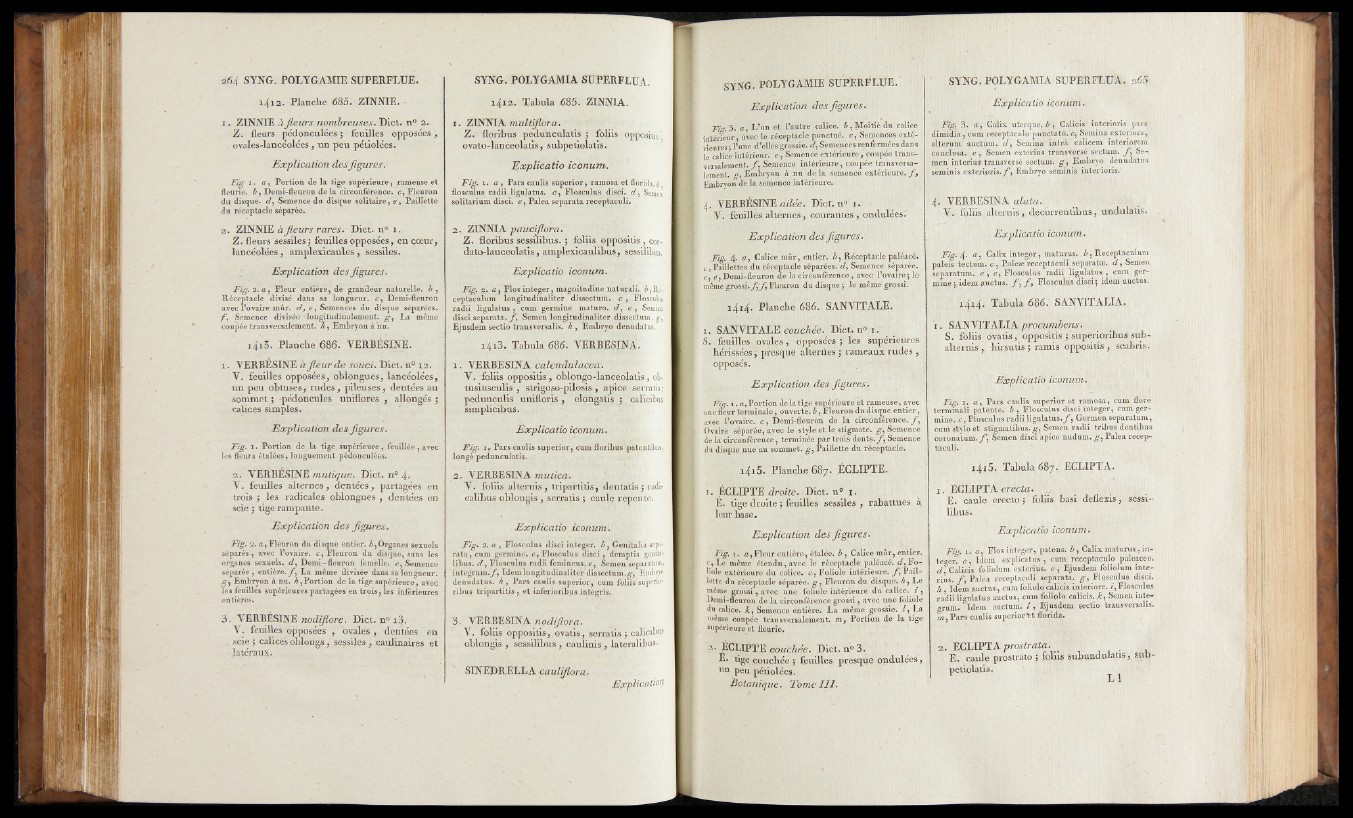 264 SYNG. POLYGAMIE SUPERFLUE.
1412. Planche 685. ZINNIE.
1. ZINNIE à fleurs nombreuses. Dict. n° 2.
Z. fleurs pédonculées ; feuilles opposées,
ovales-lancéolées, un peu pétiolées.
Explication des figures.
Fig. 1. a, Portion de la tige supérieure, rameuse et
fleurie. b, Demi-fleuron de la circonférence. c, Fleuron
du disque. d, Semence du disque solitaire, e, Paillette
du réceptacle séparée.
2. ZINNIE à fleurs rares. Dict. n° 1.
Z. fleurs sessiles ; feuilles opposées, en cœur,
lancéolées, amplexicaules, sessiles.
Explication des figures.
Fig. 2. a, Fleur entière, de grandeur naturelle. b,
Réceptacle divisé dans sa longueur. c, Demi-fleuron
avec l'ovaire mûr. d, e, Semences du disque séparées.
f, Semence divisée longitudinalement. g, La même
coupée transversalement. h, Embryon à nu.
1413. Planche 686. VERBÉSINE.
1. VERBÉSINE à fleur de souci. Dict. n° 12.
V. feuilles opposées, oblongues, lancéolées,
un peu obtuses, rudes, pileuses, dentées au
sommet ; pédoncules uniflores, allongés ;
calices simples.
Explication des figures.
Fig. 1. Portion de la tige supérieure, feuillée, avec
les fleurs étalées, longuement pédonculées.
2. VERBÉSINE mutique. Dict. n° 4.
V. feuilles alternes, dentées, partagées en
trois ; les radicales oblongues, dentées en
scie ; tige rampante.
Explication des figures.
Fig. 2. a, Fleuron du disque entier. b, Organes sexuels
séparés, avec l'ovaire. c, Fleuron du disque, sans les
organes sexuels. d, Demi-fleuron femelle. e, Semence
séparée, entière. f, La même divisée dans sa longueur.
g, Embryon à nu. h, Portion de la tige supérieure, avec
les feuilles supérieures partagées en trois, les inférieures
entières.
3. VERBÉSINE nodiflore. Dict. n° 13.
V. feuilles opposées, ovales, dentées en
scie ; calices oblongs, sessiles, caulinaires et
latéraux.
SYNG. POLYGAMIA SUPERFLUA.
1412. Tabula 685. ZINNIA.
1. ZINNIA multiflora.
Z. floribus pedunculatis ; foliis oppositis,
ovato-lanceolatis, subpetiolatis.
Explicatio iconum.
Fig. 1. a, Pars caulis superior, ramosa et florida. b,
flosculus radii ligulatus. c, Flosculus disci. d, Semen
solitarium disci. e, Palea separata receptaculi.
2. ZINNIA pauciflora.
Z. floribus sessilibus ; foliis oppositis, cor-
dato-lanceolatis, amplexicaulibus, sessilibus.
Explicatio iconum.
Fig. 2. a, Flos integer, magnitudine naturali. b, Re-
ceptaculum longitudinaliter dissectum. c, Flosculus
radii ligulatus, cum germine maturo. d, e, Semina
disci separata. f, Semen longitudinaliter dissectum. g,
Ejusdem sectio transversalis. h, Embryo denudatus.
1413. Tabula 686. VERBESINA.
1. VERBESINA calendulacea.
V. foliis oppositis, oblongo-lanceolatis, ob-
tusiusculis, strigoso-pilosis, apice serratis ;
pedunculis unifloris, elongatis ; calicibus
simplicibus.
Explicatio iconum.
Fig. 1. Pars caulis superior, cum floribus patentibus,
longè pedunculatis.
2. VERBESINA mutica.
V. foliis alternis, tripartitis, dentatis ; radi-
calibus oblongis, serratis ; caule repente.
Explicatio iconum.
Fig. 2. a, Flosculus disci integer. b, Genitalia sepa-
rata, cum germine. c, Flosculus disci, demptis genita-
libus. d, Flosculus radii femineus. e, Semen separatum,
integrum. f, Idem longitudinaliter dissectum. g, Embryo
denudatus. h, Pars caulis superior, cum foliis superio-
ribus tripartitis, et inferioribus integris.
3. VERBESINA nodiflora.
V. foliis oppositis, ovatis, serratis ; calicibus
oblongis, sessilibus, caulinis, lateralibus.
SINEDRELLA cauliflora.
Explication
SYNG. POLYGAMIE SUPERFLUE.
Explication des figures.
Fig. 3. a, L'un et l'autre calice. b, Moitié du calice
intérieur, avec le réceptacle ponctué. c, Semences exté-
rieures ; l'une d'elles grossie. d, Semences renfermées dans
le calice intérieur. e, Semence extérieure, coupée trans-
versalement. f, Semence intérieure, coupée transversa-
lement. g, Embryon à nu de la semence extérieure. f,
Embryon de la semence intérieure.
4. VERBÉSINE ailée. Dict. n° 1.
V. feuilles alternes, courantes, ondulées.
Explication des figures.
Fig. 4. a, Calice mûr, entier. b, Réceptacle paléacé.
c, Paillettes du réceptacle séparées. d, Semence séparée.
e, e, Demi-fleuron de la circonférence, avec l'ovaire ; le
même grossi. f, f, Fleuron du disque ; le même grossi.
1414. Planche 686. SANVITALE.
1. SANVITALE couchée. Dict. n° 1.
S. feuilles ovales, opposées ; les supérieures
hérissées, presque alternes ; rameaux rudes,
opposés.
Explication des figures.
Fig. 1. a, Portion de la tige supérieure et rameuse, avec
une fleur terminale, ouverte. b, Fleuron du disque entier,
avec l'ovaire. c, Demi-fleuron de la circonférence. f,
Ovaire séparée, avec le style et le stigmate. g, Semence
de la circonférence, terminée par trois dents. f, Semence
du disque nue au sommet. g, Paillette du réceptacle.
1415. Planche 687. ÉCLIPTE.
1. ÉCLIPTE droite. Dict. n° 1.
E. tige droite ; feuilles sessiles, rabattues à
leur base.
Explication des figures.
Fig. 1. a, Fleur entière, étalée. b, Calice mûr, entier.
c, Le même étendu, avec le réceptacle paléacé. d, Fo-
liole extérieure du calice. e, Foliole intérieure. f, Pail-
lette du réceptacle séparée. g, Fleuron du disque. h, Le
même grossi, avec une foliole intérieure du calice. i,
Demi-fleuron de la circonférence grossi, avec une foliole
du calice. k, Semence entière. La même grossie. l, La
même coupée transversalement. m, Portion de la tige
supérieure et fleurie.
2. ÉCLIPTE couchée. Dict. n° 3.
E. tige couchée ; feuilles presque ondulées,
un peu pétiolées.
Botanique. Tome III.
SYNG. POLYGAMIA SUPERFLUA. 265
Explicatio iconum.
Fig. 3. a, Calix uterque. b, Calicis interioris pars
dimidia, cum receptaculo punctato. c, Semina exteriora,
alterum auctum. d, Semina intrà calicem interiorem
conclusa. e, Semen exterius transversè sectum. f, Se-
men interius transversè sectum. g, Embryo denudatus
seminis exterioris. f, Embryo seminis interioris.
4. VERBESINA alata.
V. foliis alternis, decurrentibus, undulatis.
Explicatio iconum.
Fig. 4. a, Calix integer, maturus. b, Receptaculum
paleis tectum. c, Paleæ receptaculi separatæ. d, Semen
separatum. e, e, Flosculus radii ligulatus, cum ger-
mine ; idem auctus. f, f, Flosculus disci ; idem auctus.
1414. Tabula 686. SANVITALIA.
1. SANVITALIA procumbens.
S. foliis ovatis, oppositis ; superioribus sub-
alternis, hirsutis ; ramis oppositis, scabris.
Explicatio iconum.
Fig. 1. a, Pars caulis superior et ramosa, cum flore
terminali patente. b, Flosculus disci integer, cum ger-
mine. c, Flosculus radii ligulatus. f, Germen separatum,
cum stylo et stigmatibus. g, Semen radii tribus dentibus
coronatum. f, Semen disci apice nudum. g, Palea recep-
taculi.
1415. Tabula 687. ECLIPTA.
1. ECLIPTA erecta.
E. caule erecto ; foliis basi deflexis, sessi-
libus.
Explicatio iconum.
Fig. 1. a, Flos integer, patens. b, Calix maturus, in-
teger. c, Idem explicatus, cum receptaculo paleaceo.
d, Calicis foliolum exterius. e, Ejusdem foliolum inte-
rius. f, Palea receptaculi separata. g, Flosculus disci.
h, Idem auctus, cum foliolo calicis interiore. i, Flosculus
radii ligulatus auctus, cum foliolo calicis. k, Semen inte-
grum. Idem auctum. l, Ejusdem sectio transversalis.
m, Pars caulis superior et florida.
2. ECLIPTA prostrata.
E. caule prostrato ; foliis subundulatis, sub-
petiolatis.
L l